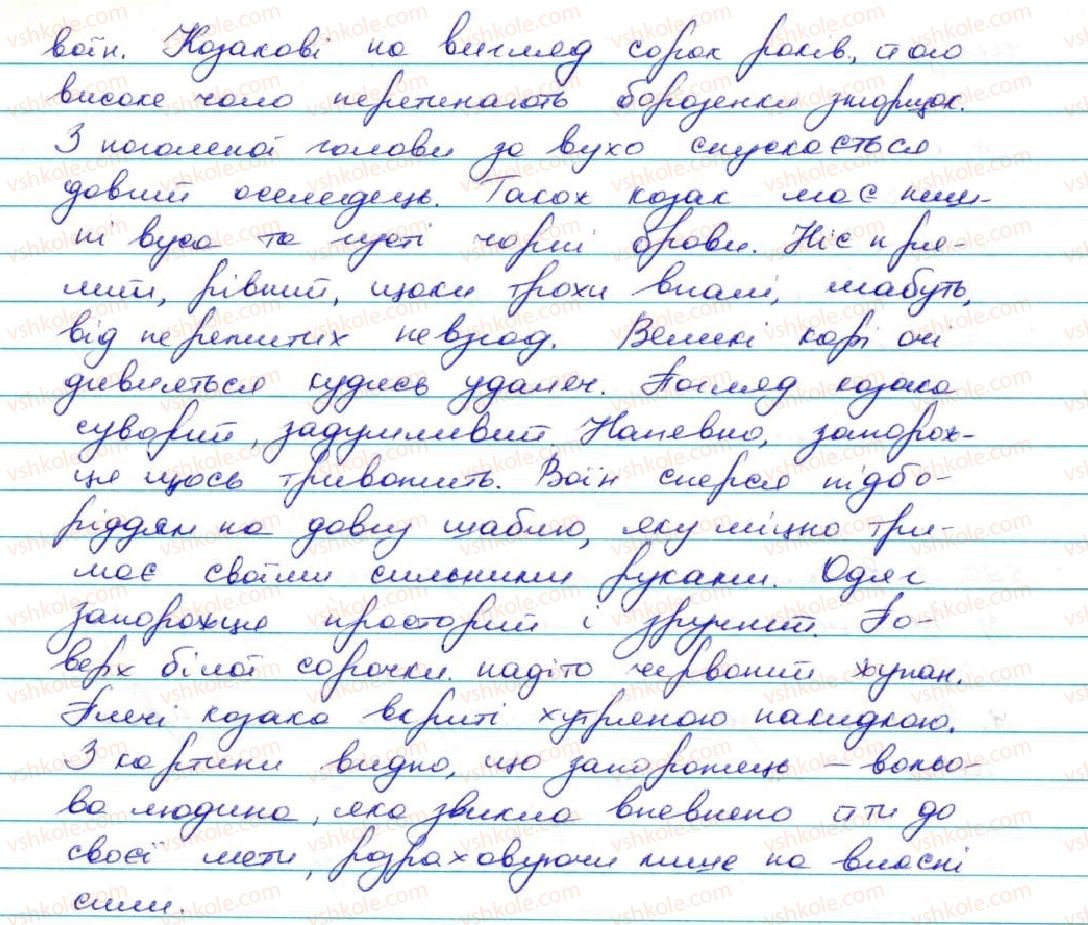 воїн. Козакові на вигляд сорок років, його
високе чоло перетинають борозенки зморщок.
З поголеної голови за вухо спускається
довгий оселедець. Також козак має пиш-
ні вуса та густі чорні брови. Ніс пря-
мий, рівний, щоки трохи впалі, мабуть,
від пережитих невзгод. Великі карі очі
дивляться кудись удалеч. Погляд козака
суворий, задумливий. Напевно, запорож-
ця щось тривожить. Воїн сперся підбо-
ріддям на довгу шаблю, яку міцно три-
має своїми сильними руками. Одяг
запорожця просторий і зручний. По-
верх білої сорочки надіто червоний жупан.
Плечі козака вкриті хутряною накидкою.
З картини видно, що запорожець – вольо-
ва людина, яка звикла впевнено йти до
своєї мети, розраховуючи лише на власні
сили.